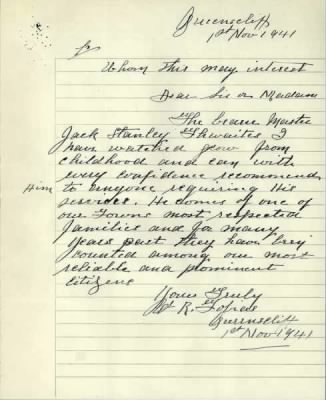 Queenscliff
1st Nov 1941
To
Whom this may interest
Dear Sir or Madam
The bearer Master
Jack Stanley Thwaites I
have watched grow from
childhood and can with
every confidence recommend
Him to anyone requiring His
service. He comes of one of
our Towns most respected
families and for many
years past they have being
counted among our most
reliable and prominent
citizens
Yours Truly
R.
Queenscliff
1st Nov 1941